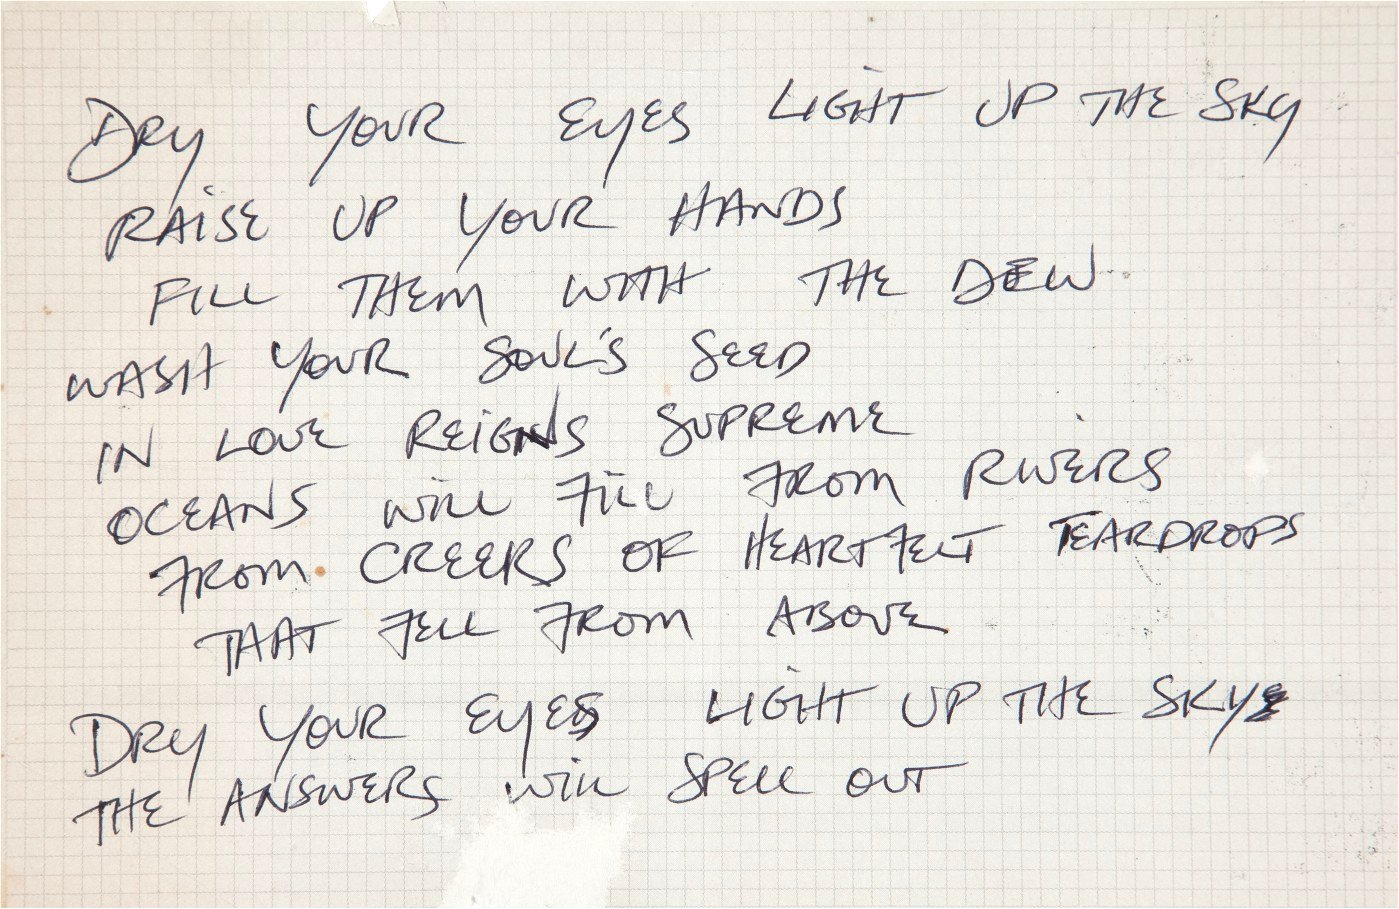 DRY YOUR EYES LIGHT UP THE SKY
RAISE UP YOUR HANDS
FILL THEM WITH THE DEW
WASH YOUR SOUL'S SEED
IN LOVE REIGNS SUPREME
OCEANS WILL FILL FROM RIVERS
FROM CREEKS OF HEARTFELT TEARDROPS
THAT FELL FROM ABOVE
DRY YOUR EYES LIGHT UP THE SKY
THE ANSWERS WILL SPELL OUT